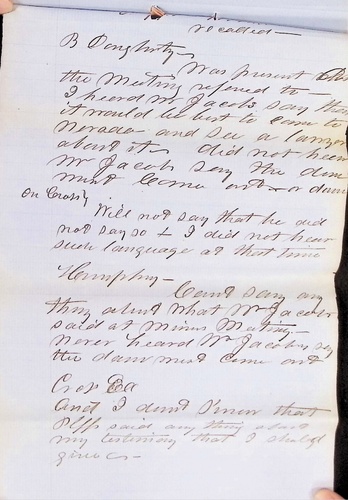 recalled —
B Dougherty —
Was present
the Meeting refered to —
I heard Mr Jacobs say that
it would be best to come to
Nevada — and see a lawyer
about it. did not hear
Mr Jacobs say the dam
must come out — or down
on Cross'g
Will not say that he did
not say so — I did not hear
such language at that time
Humphry —
Cant say any
thing about what Mr Jacobs
said at Mines Meeting —
never heard Mr Jacobs say
the dam must come out
C of Ex
And I dont know that
Plff said any thing about
my testimony that I should
give —